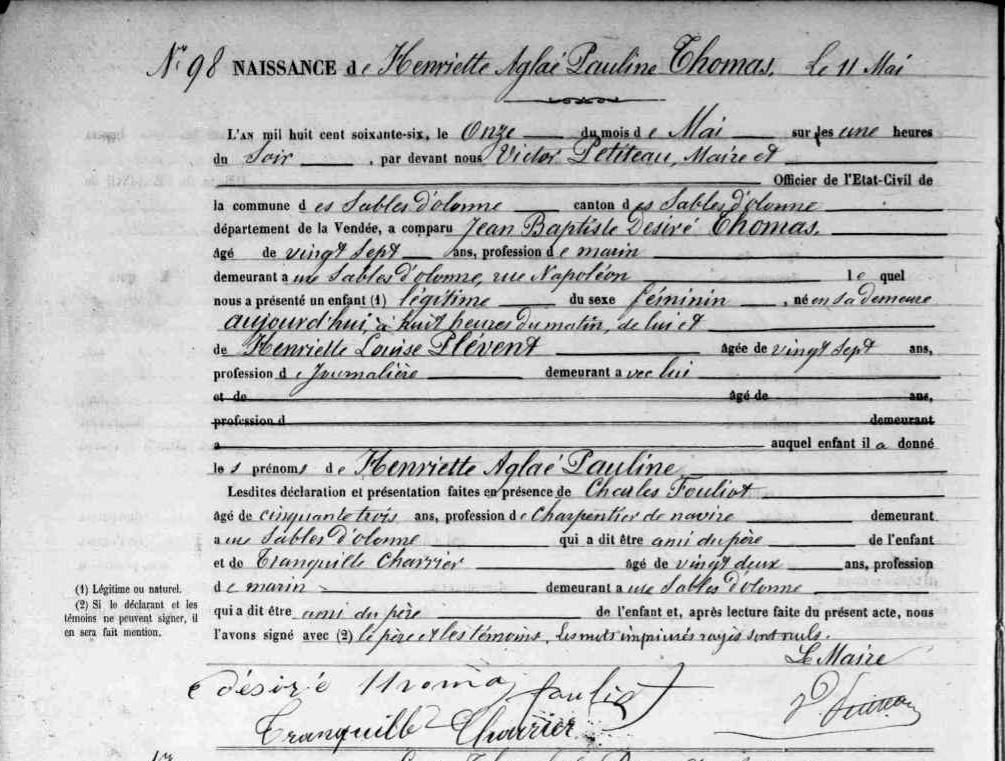 Nº 98 NAISSANCE de Henriette Aglaé Pauline Thomas. Le 11 Mai
L'AN mil huit cent soixante-six, le Onze du mois de Mai sur les une heures
du Soir, par devant nous Victor Petiteau, Maire et
Officier de l'Etat-Civil de
la commune des Sables d'olonne canton des Sables d'olonne
département de la Vendée, a comparu Jean Baptiste Désiré Thomas.
âgé de vingt Sept ans, profession de marin
demeurant aux Sables d'olonne, rue Napoléon lequel
nous a présenté un enfant (1) légitime du sexe féminin, né en sa demeure
aujourd'hui, à huit heures du matin, de lui et
de Henriette Louise Plévent âgée de vingt Sept ans,
profession de Journalière demeurant avec lui
et de âgé de ans,
profession d demeurant
a auquel enfant il a donné
les prénoms de Henriette Aglaé Pauline
Lesdites déclaration et présentation faites en présence de Charles Fouliot
âgé de cinquante trois ans, profession de Charpentier de navire demeurant
aux Sables d'olonne qui a dit être ami du père de l'enfant
et de Tranquille Charrier âgé de vingt deux ans, profession
de marin demeurant aux Sables d'olonne
qui a dit être ami du père de l'enfant et, après lecture faite du présent acte, nous
l'avons signé avec (2) le père et les témoins. Les mots imprimés rayés sont nuls.
(1) Légitime ou naturel.
(2) Si le déclarant et les
témoins ne peuvent signer, il
en sera fait mention.
Le Maire
désiré thomas fouliot
Tranquille Charrier